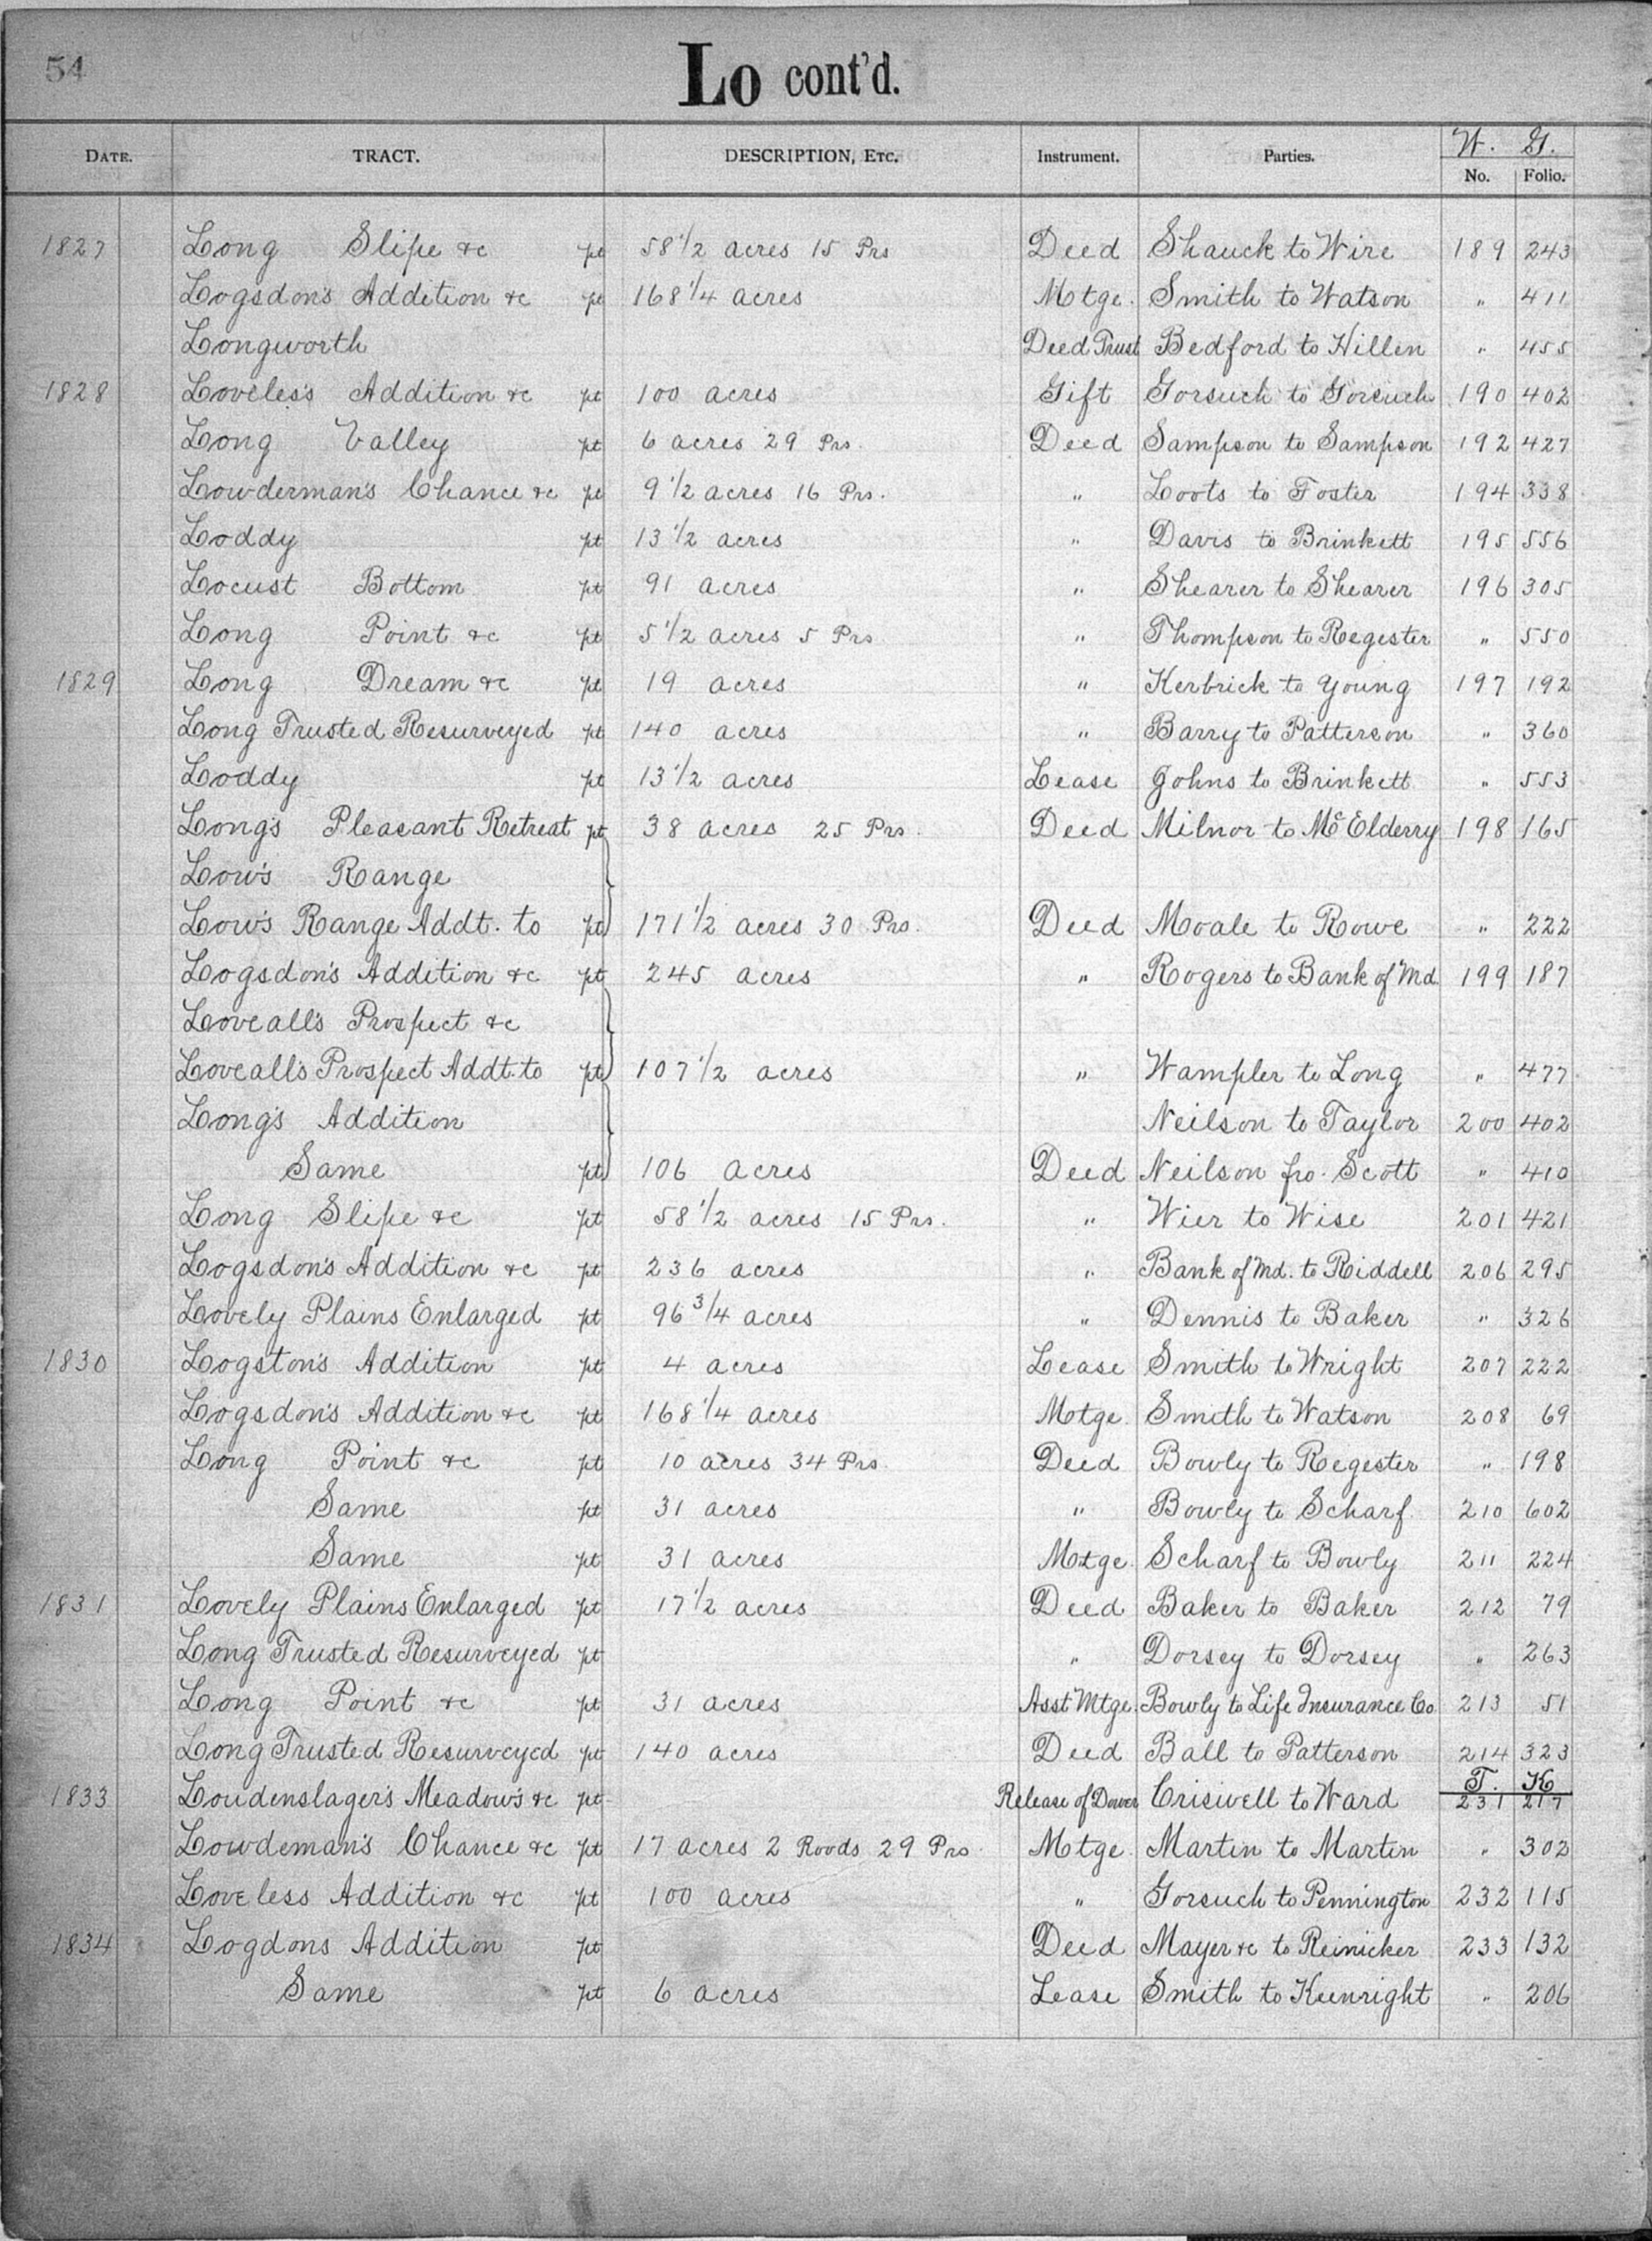 54
Lo cont'd.
DATE. TRACT. DESCRIPTION, ETC. Instrument. Parties. W. G.
No. Folio.
1827 Long Slipe &c pt 58 1/2 acres 15 Prs Deed Shauck to Wire 189 243
Logsdon's Addition &c pt 168 1/4 acres Motge. Smith to Watson " 411
Longworth Deed Trust Bedford to Hillen " 455
1828 Loveless Addition &c pt 100 acres Gift Gorsuch to Gorsuch 190 402
Long Valley pt 6 acres 29 Prs. Deed Sampson to Sampson 192 427
Lowderman's Chance &c pt 9 1/2 acres 16 Prs. " Loots to Foster 194 338
Loddy pt 13 1/2 acres " Davis to Brinkett 195 556
Locust Bottom pt 91 acres " Shearer to Shearer 196 305
Long Point &c pt 5 1/2 acres 5 Prs " Thompson to Regester " 550
1829 Long Dream &c pt 19 acres " Kerbrick to Young 197 192
Long Trusted Resurveyed pt 140 acres " Barry to Patterson " 360
Loddy pt 13 1/2 acres Lease Johns to Brinkett " 553
Long's Pleasant Retreat pt 38 acres 25 Prs. Deed Milnor to McElderry 198 165
Low's Range
Low's Range Addt. to pt 171 1/2 acres 30 Prs. Deed Moale to Rowe " 222
Logsdon's Addition &c pt 245 acres " Rogers to Bank of Md. 199 187
Loveall's Prospect &c
Loveall's Prospect Addt. to pt 107 1/2 acres " Wampler to Long " 477
Long's Addition Neilson to Taylor 200 402
Same pt 106 acres Deed Neilson fro. Scott " 410
Long Slipe &c pt 58 1/2 acres 15 Prs. " Wier to Wise 201 421
Logsdon's Addition &c pt 236 acres " Bank of Md. to Riddell 206 295
Lovely Plains Enlarged pt 96 3/4 acres " Dennis to Baker " 326
1830 Logston's Addition pt 4 acres Lease Smith to Wright 207 222
Logsdon's Addition &c pt 168 1/4 acres Motge. Smith to Watson 208 69
Long Point &c pt 10 acres 34 Prs. Deed Bowly to Regester " 198
Same pt 31 acres " Bowly to Scharf 210 602
Same pt 31 acres Motge. Scharf to Bowly 211 224
1831 Lovely Plains Enlarged pt 17 1/2 acres Deed Baker to Baker 212 79
Long Trusted Resurveyed pt " Dorsey to Dorsey " 263
Long Point &c pt 31 acres Asst Mtge. Bowly to Life Insurance Co 213 51
Long Trusted Resurveyed pt 140 acres Deed Ball to Patterson 214 323
T. K
1833 Loudenslager's Meadow's &c pt Release of Dower Criswell to Ward 231 217
Lowdeman's Chance &c pt 17 acres 2 Roods 29 Prs. Motge. Martin to Martin " 302
Loveless Addition &c pt 100 acres " Gorsuch to Pennington 232 115
1834 Logdons Addition pt Deed Mayer &c to Reinicker 233 132
Same pt 6 acres Lease Smith to Keenright " 206